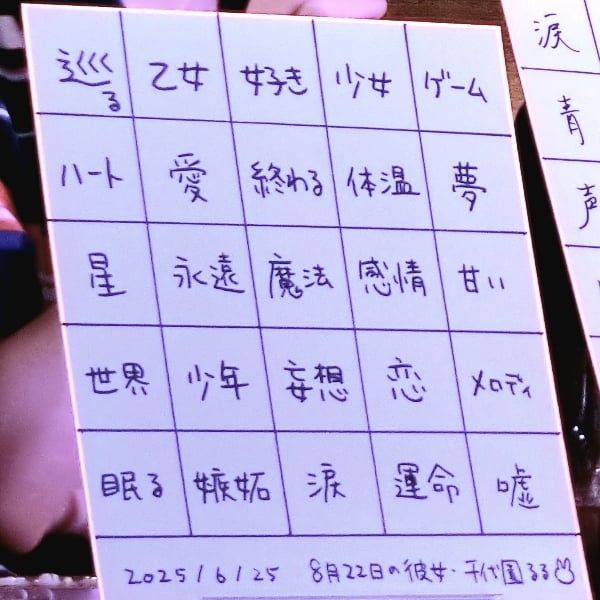 巡る 乙女 好き 少女 ゲーム
ハート 愛 終わる 体温 夢
星 永遠 魔法 感情 甘い
世界 少年 妄想 恋 メロディ
眠る 嫉妬 涙 運命 嘘
2025/6/25 8月22日の彼女・千代園るる
涙
青
声